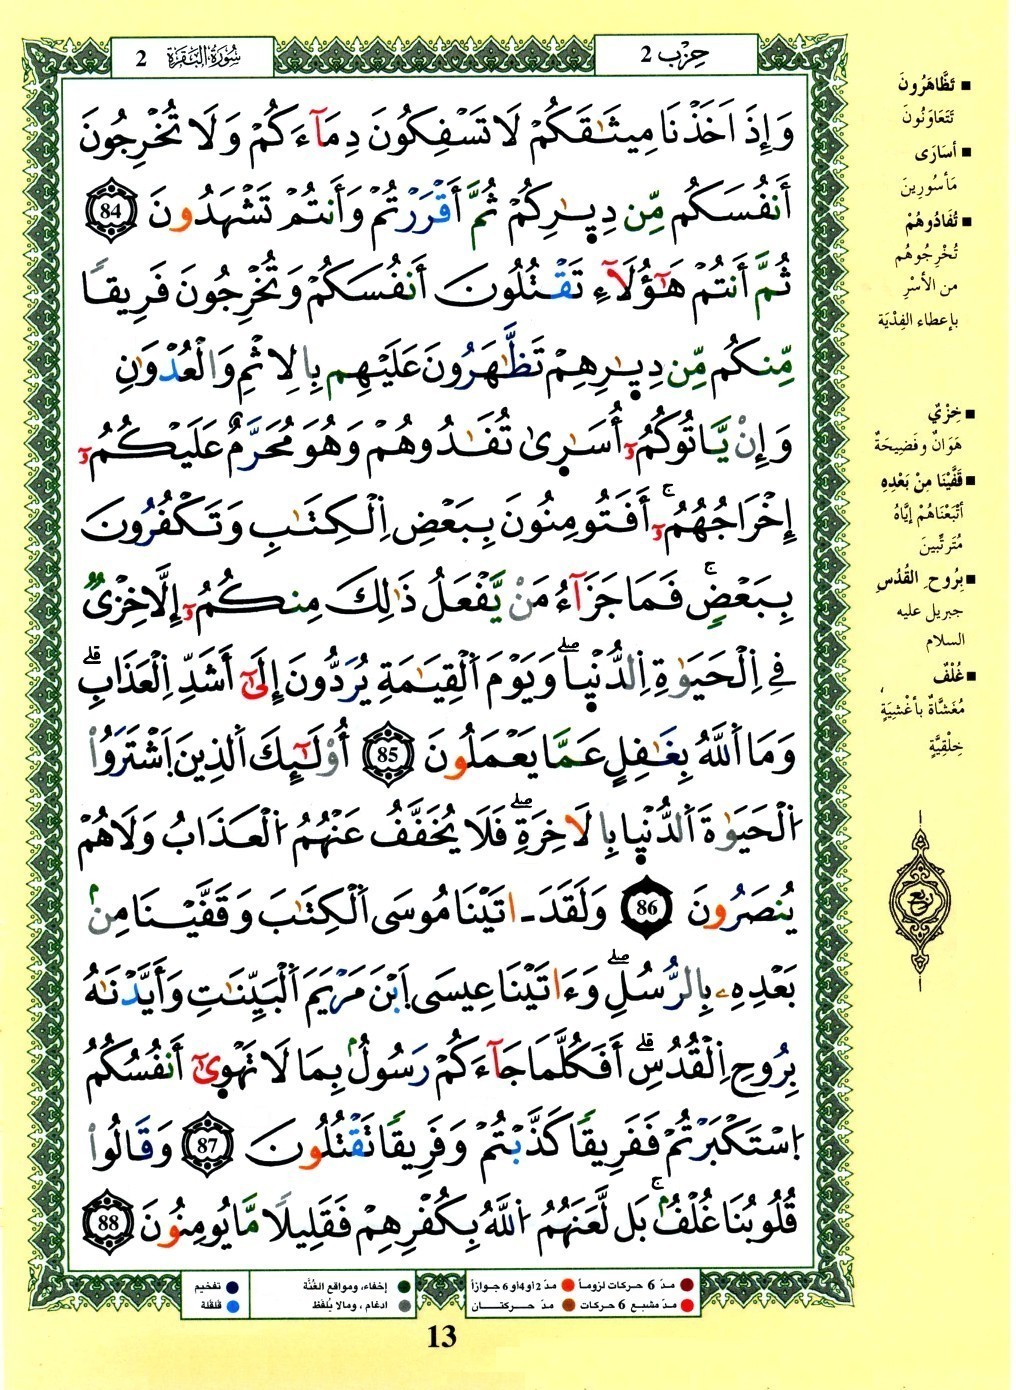 حِزْب 2
سُورَةُ الْبَقَرَةِ 2
وَإِذَ اَخَذْنَا مِيثَٰقَكُمْ لَا تَسْفِكُونَ دِمَآءَكُمْ وَلَا تُخْرِجُونَ
أَنفُسَكُم مِّن دِيٰ۪رِكُمْ ثُمَّ أَقْرَرْتُمْ وَأَنتُمْ تَشْهَدُونَ 84
ثُمَّ أَنتُمْ هَٰٓؤُلَآءِ تَقْتُلُونَ أَنفُسَكُمْ وَتُخْرِجُونَ فَرِيقاً
مِّنكُم مِّن دِيٰ۪رِهِمْ تَظَّٰهَرُونَ عَلَيْهِم بِالِاثْمِ وَالْعُدْوَٰنِ
وَإِنْ يَّاتُوكُمُۥٓ أُسَٰر۪ىٰ تُفَٰدُوهُمْ وَهُوَ مُحَرَّمٌ عَلَيْكُمُۥٓ
إِخْرَاجُهُمُۥٓۚ أَفَتُومِنُونَ بِبَعْضِ اِلْكِتَٰبِ وَتَكْفُرُونَ
بِبَعْضٍۚ فَمَا جَزَآءُ مَنْ يَّفْعَلُ ذَٰلِكَ مِنكُمُۥٓ إِلَّا خِزْىٌ
فِے اِلْحَيَوٰةِ اِلدُّنْي۪اۖ وَيَوْمَ اَلْقِيَٰمَةِ يُرَدُّونَ إِلَىٰٓ أَشَدِّ اِلْعَذَابِۗ
وَمَا اَللَّهُ بِغَٰفِلٍ عَمَّا يَعْمَلُونَ 85 أُوْلَٰٓئِكَ اَلذِينَ اَشْتَرَوُاْ
اُلْحَيَوٰةَ اَلدُّنْي۪ا بِالَاخِرَةِۖ فَلَا يُخَفَّفُ عَنْهُمُ اُلْعَذَابُ وَلَا هُمْ
يُنصَرُونَ 86 وَلَقَدَ ـ اتَيْنَا مُوسَى اَلْكِتَٰبَ وَقَفَّيْنَا مِنۢ
بَعْدِهِۦ بِالرُّسُلِۖ وَءَاتَيْنَا عِيسَى اَبْنَ مَرْيَمَ اَلْبَيِّنَٰتِ وَأَيَّدْنَٰهُ
بِرُوحِ اِلْقُدُسِۗ أَفَكُلَّمَا جَآءَكُمْ رَسُولُۢ بِمَا لَا تَهْو۪ىٰٓ أَنفُسُكُمُ
اُسْتَكْبَرْتُمْ فَفَرِيقاً كَذَّبْتُمْ وَفَرِيقاً تَقْتُلُونَ 87 وَقَالُواْ
قُلُوبُنَا غُلْفُۢۚ بَل لَّعَنَهُمُ اُللَّهُ بِكُفْرِهِمْ فَقَلِيلاً مَّا يُومِنُونَ 88
■ تَظَّاهَرُونَ
تَتَعَاوَنُونَ
■ أسَارَى
مَأسُورِينَ
■ تُفَادُوهُمْ
تُخْرِجُوهُم
من الأسْرِ
بإعطاء الفِدْيَة
■ خِزْيٌ
هَوَانٌ وفَضِيحَةٌ
■ قَفَّيْنَا مِنْ بَعْدِهِ
أتْبَعْنَاهُمْ إيَّاهُ
مُتَرتِّبينَ
■ بِرُوحِ القُدُسِ
جبريل عليه
السلام
■ غُلْفٌ
مُغَشَّاةٌ بأغْشِيَةٍ
خِلْقِيَّةٍ
ربع
مدّ 6 حركات لزوماً ● مدّ 2 أو 4 أو 6 جوازاً
مدّ مشبع 6 حركات ● مدّ حركتان
إخفاء، ومواقع الغُنَّة
ادغام، ومالا يُلفظ
تفخيم
قلقلة
13